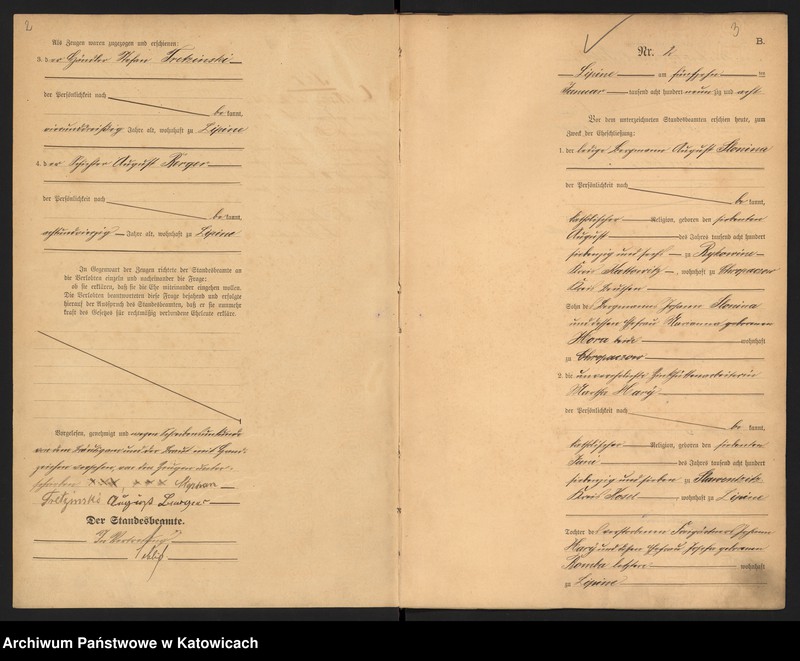 2
Als Zeugen waren zugezogen und erschienen:
3. der Händler Stefan Tretzinski
der Persönlichkeit nach
be kannt,
vierunddreißig Jahre alt, wohnhaft zu Lipine
4. der August Berger
der Persönlichkeit nach
be kannt,
achtundvierzig Jahre alt, wohnhaft zu Lipine
In Gegenwart der Zeugen richtete der Standesbeamte an
die Verlobten einzeln und nacheinander die Frage:
ob sie erklären, daß sie die Ehe miteinander eingehen wollen.
Die Verlobten beantworteten diese Frage bejahend und erfolgte
hierauf der Ausspruch des Standesbeamten, daß er sie nunmehr
kraft des Gesetzes für rechtmäßig verbundene Eheleute erkläre.
Vorgelesen, genehmigt und wegen Schreibensunkunde
von dem Bräutigam und der Braut mit Hand-
zeichen versehen, von den Zeugen unter-
schrieben XXX, XXX
Tretzinski August
Der Standesbeamte.
In Vertretung
3
B.
Nr. 2
Lipine am fünfzehn ten
Januar tausend acht hundert neunzig und acht
Vor dem unterzeichneten Standesbeamten erschien heute, zum
Zweck der Eheschließung:
1. der ledige Bergmann August Slonina
der Persönlichkeit nach
be kannt,
katholischer Religion, geboren den siebenten
August des Jahres tausend acht hundert
siebenzig und sechs zu Bykowine
Kreis Kattowitz, wohnhaft zu Chropaczow
Kreis Beuthen
Sohn des Bergmanns Johann Slonina
und dessen Ehefrau Marianna geborenen
Hora beide wohnhaft
zu Chropaczow
2. die unverehelichte Zinkhüttenarbeiterin
Martha Hary
der Persönlichkeit nach
be kannt,
katholischer Religion, geboren den siebenten
Juni des Jahres tausend acht hundert
siebenzig und sieben zu Slawentzitz
Kreis Kosel, wohnhaft zu Lipine
Tochter des verstorbenen Johann
Hary und dessen Ehefrau geborenen
Komba wohnhaft
zu Lipine
Archiwum Państwowe w Katowicach